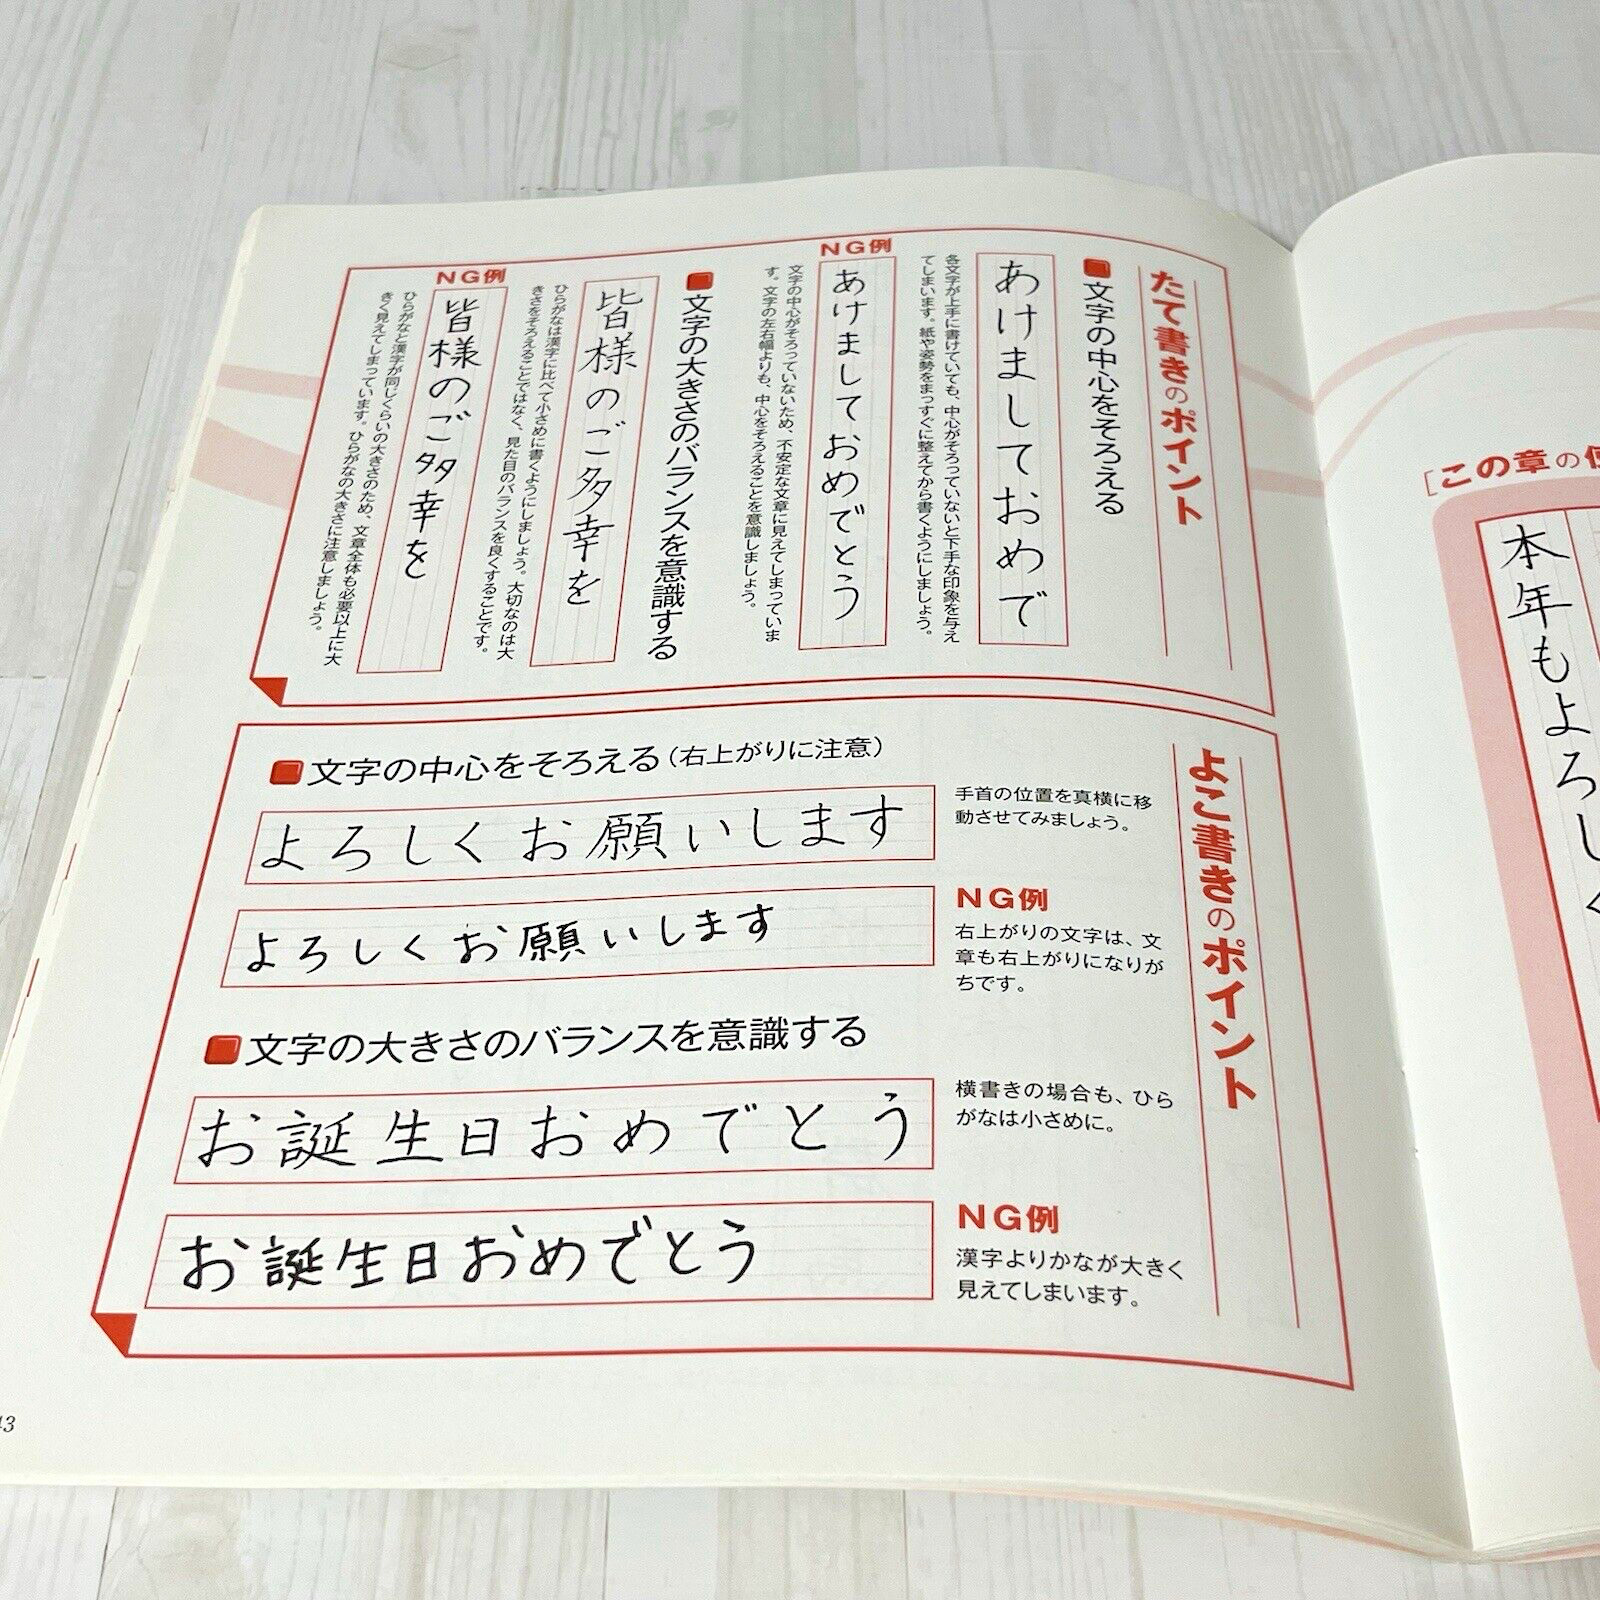 たて書きのポイント
■文字の中心をそろえる
あけましておめで
各文字が上手に書けていても、中心がそろっていないと下手な印象を与え
てしまいます。紙や姿勢をまっすぐに整えてから書くようにしましょう。
NG例
あけましておめでとう
文字の中心がそろっていないため、不安定な文章に見えてしまっていま
す。文字の左右幅よりも、中心をそろえることを意識しましょう。
■文字の大きさのバランスを意識する
皆様のご多幸を
ひらがなは漢字に比べて小さめに書くようにしましょう。大切なのは大
きさをそろえることではなく、見た目のバランスを良くすることです。
NG例
皆様のご多幸を
ひらがなと漢字が同じくらいの大きさのため、文章全体も必要以上に大
きく見えてしまっています。ひらがなの大きさに注意しましょう。
よこ書きのポイント
■文字の中心をそろえる（右上がりに注意）
よろしくお願いします
手首の位置を真横に移
動させてみましょう。
よろしくお願いします
NG例
右上がりの文字は、文
章も右上がりになりが
ちです。
■文字の大きさのバランスを意識する
お誕生日おめでとう
横書きの場合も、ひら
がなは小さめに。
お誕生日おめでとう
NG例
漢字よりかなが大きく
見えてしまいます。
43
[この章の使
本年もよろしく